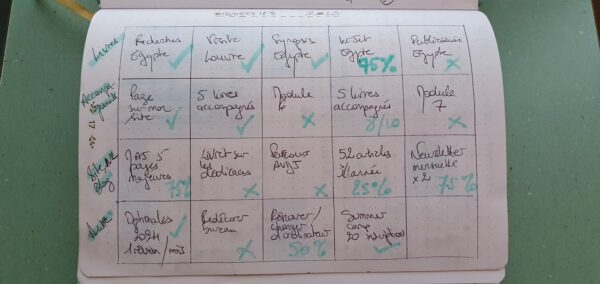 Livres
Recherches
Egypte
Visite
Louvre
Synopsis
Egypte
Egypte
75%
Publication
Egypte
Page
sur mon
site
5 livres
accompagnés
Module
5 livres
accompagnés
8/10
Module
7
Site
Blog
MAJ 5
pages
majeures
75%
Livret sur
les
dédicaces
52 articles
à l'année
25%
Newsletter
mensuelle
x 2
75%
2024
/mois
Redécorer
bureau
Rénover/
changer
d'ordinateur
50%
Summer
camp
20